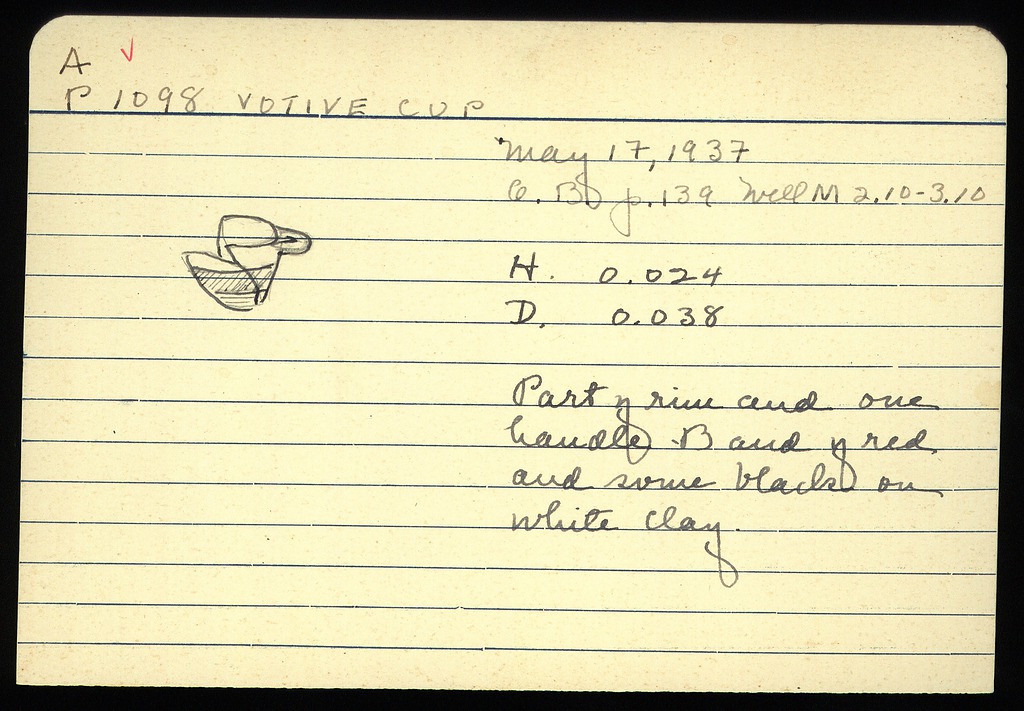 A ✓
P 1098 VOTIVE CUP
May 17, 1937
C. B p. 139 Well M 2.10-3.10
H. 0.024
D. 0.038
Part of rim and one
handle. Band of red
and some black on
white clay.